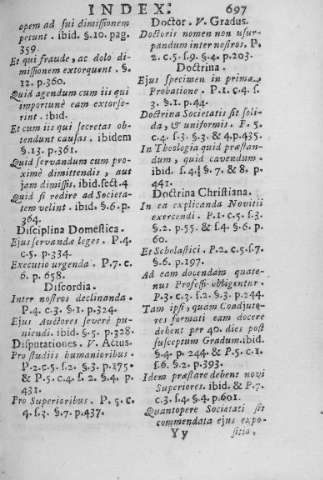 INDEX: 697
opem ad sui dimissionem
petunt. ibid. §.10. pag.
359.
Et qui fraude, ac dolo di-
missionem extorquent. §.
12. p.360.
Quid agendum cum iis qui
importunè eam extorse-
rint. ibid.
Et cum iis qui secretas ob-
tendunt causas. ibidem
§.13. p.361.
Quid servandum cum pro-
ximè dimittendis, aut
jam dimissis. ibid.sect.4
Quid si redire ad Societa-
tem velint. ibid. §.6.p.
364.
Disciplina Domestica.
Ejus servanda leges. P.4.
c.5. p.334.
Executio urgenda. P.7.c.
6. p. 658.
Discordia.
Inter nostros declinanda.
P.4. c.3. §.1. p.324.
Ejus Auctores severè pu-
niendi. ibid. §.5. p.328.
Disputationes. V. Actus.
Pro studiis humanioribus.
P.2.c.5. s.2. §.3. p.175
& P.5.c.4. s.2. §.4. p.
431.
Pro Superioribus. P.5.c.
4. s.3. §.7. p.437.
Doctor. V. Gradus.
Doctoris nomen non usur-
pandum inter nostros. P.
2. c.5. s.9. §.4. p.203.
Doctrina.
Ejus specimen in prima
Probatione. P.1. c.4. s.
3. §.1. p.44.
Doctrina Societatis sit soli-
da, & uniformis. P.5.
c.4. s.3. §.3. & 4.p.435.
In Theologia quid præstan-
dum, quid cavendum.
ibid. s.4. §.7. & 8. p.
441.
Doctrina Christiana.
In ea explicanda Novitii
exercendi. P.1. c.5. s.3.
§.2. p.55. & s.4. §.6. p.
60.
Et Scholastici. P.2.c.5.s.7.
§.6. p.197.
Ad eam docendam quate-
nus Professi obligentur.
P.3. c.3. s.2. §.3. p.244.
Tam ipsi, quam Coadjuto-
res formati eam docere
debent per 40. dies post
susceptum Gradum.ibid.
§.4. p. 244. & P.5. c.1.
s.6. §.2. p.393.
Idem præstare debent novi
Superiores. ibid. & P.7.
c.3. s.4. §.4. p.601.
Quantopere Societati sit
commendata ejus expo-
Yy sitio.